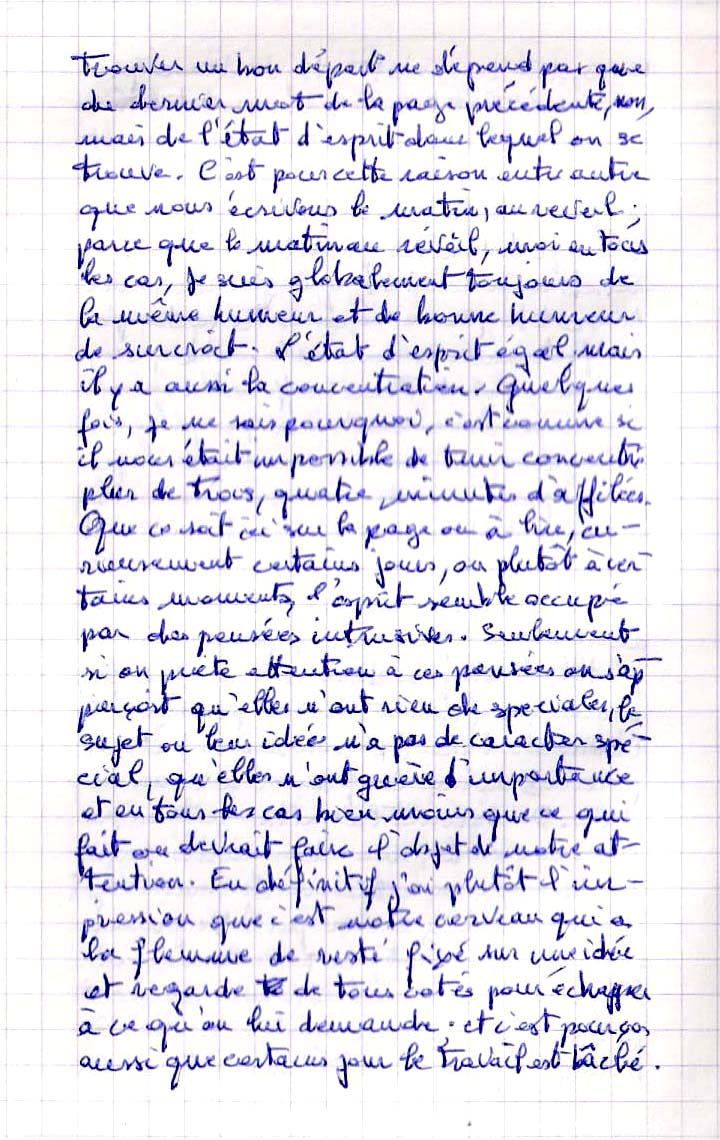 trouver un bon départ ne dépend pas que
du dernier mot de la page précédente, non,
mais de l'état d'esprit dans lequel on se
trouve. C'est pour cette raison entre autre
que nous écrivons le matin, au reveil ;
parce que le matin au réveil, moi en tous
les cas, je suis globalement toujours de
la même humeur et de bonne humeur
de surcroît. L'état d'esprit égal mais
il y a aussi la concentration. Quelques
fois, je ne sais pourquoi, c'est comme si
il nous était impossible de tenir concentré
plus de trois, quatre minutes d'affilées.
Que ce soit ici sur la page ou à lire, cu-
rieusement certains jours, ou plutôt à cer-
tains moments, l'esprit semble occupé
par des pensées intrusives. Seulement
si on prête attention à ces pensées on s'ap-
perçoit qu'elles n'ont rien de speciales, le
sujet ou leur idée n'a pas de caracter spé-
cial, qu'elles n'ont guère d'importance
et en tous les cas bien moins que ce qui
fait ou devrait faire l'objet de notre at-
tention. En définitif j'ai plutôt l'im-
pression que c'est notre cerveau qui a
la flemme de resté fixé sur une idée
et regarde de tous cotés pour échapper
à ce qu'on lui demande ; et c'est pourquoi
aussi que certains jour le travail est bâclé.